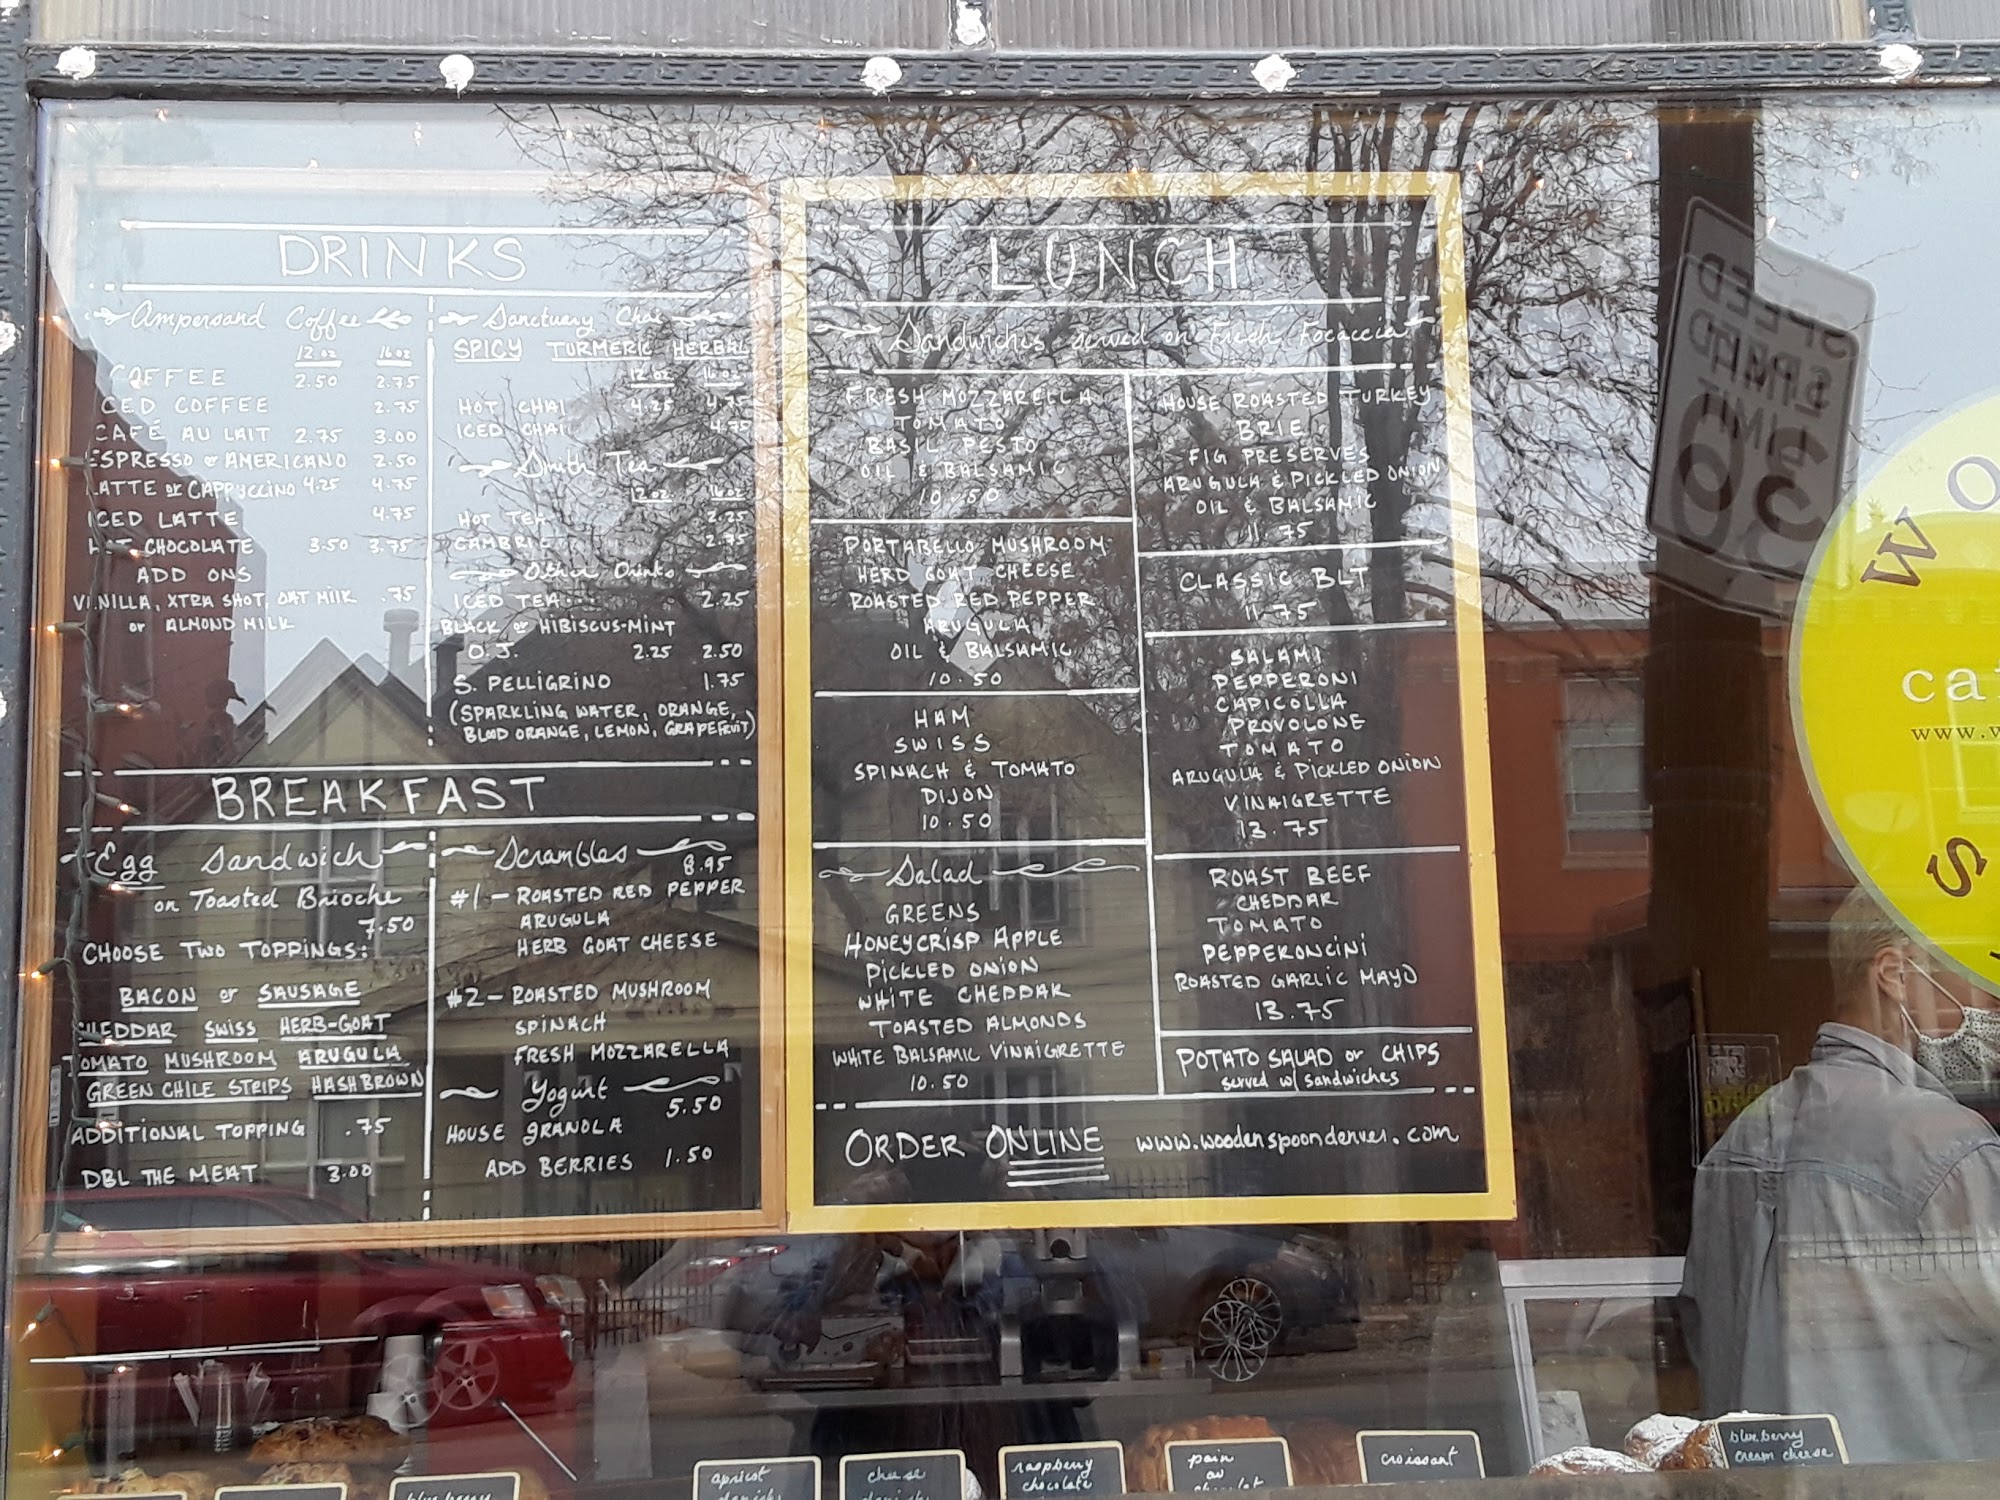 DRINKS
Ampersand Coffee
12 oz 16 oz
COFFEE 2.50 2.75
ICED COFFEE 2.75
CAFÉ AU LAIT 2.75 3.00
ESPRESSO or AMERICANO 2.50
LATTE or CAPPUCCINO 4.25 4.75
ICED LATTE 4.75
HOT CHOCOLATE 3.50 3.75
ADD ONS
VANILLA, XTRA SHOT, OAT MILK .75
or ALMOND MILK
Sanctuary Chai
SPICY TURMERIC HERBAL
12 oz 16 oz
HOT CHAI 4.25 4.75
ICED CHAI 4.75
Smith Tea
12 oz 16 oz
HOT TEA 2.25
CAMBRIC 2.75
Other Drinks
ICED TEA... 2.25
BLACK or HIBISCUS-MINT
O.J. 2.25 2.50
S. PELLIGRINO 1.75
(SPARKLING WATER, ORANGE,
BLOOD ORANGE, LEMON, GRAPEFRUIT)
BREAKFAST
Egg Sandwich
on Toasted Brioche
7.50
CHOOSE TWO TOPPINGS:
BACON or SAUSAGE
CHEDDAR SWISS HERB-GOAT
TOMATO MUSHROOM ARUGULA
GREEN CHILE STRIPS HASHBROWN
ADDITIONAL TOPPING .75
DBL THE MEAT 3.00
Scrambles
8.95
#1 - ROASTED RED PEPPER
ARUGULA
HERB GOAT CHEESE
#2 - ROASTED MUSHROOM
SPINACH
FRESH MOZZARELLA
Yogurt
5.50
HOUSE GRANOLA
ADD BERRIES 1.50
LUNCH
Sandwiches served on Fresh Focaccia
FRESH MOZZARELLA
TOMATO
BASIL PESTO
OIL & BALSAMIC
10.50
PORTABELLO MUSHROOM
HERB GOAT CHEESE
ROASTED RED PEPPER
ARUGULA
OIL & BALSAMIC
10.50
HAM
SWISS
SPINACH & TOMATO
DIJON
10.50
Salad
GREENS
HONEYCRISP APPLE
PICKLED ONION
WHITE CHEDDAR
TOASTED ALMONDS
WHITE BALSAMIC VINAIGRETTE
10.50
HOUSE ROASTED TURKEY
BRIE
FIG PRESERVES
ARUGULA & PICKLED ONION
OIL & BALSAMIC
11.75
CLASSIC BLT
11.75
SALAMI
PEPPERONI
CAPICOLLA
PROVOLONE
TOMATO
ARUGULA & PICKLED ONION
VINAIGRETTE
13.75
ROAST BEEF
CHEDDAR
TOMATO
PEPPERONCINI
ROASTED GARLIC MAYO
13.75
POTATO SALAD or CHIPS
served w/ sandwiches
ORDER ONLINE www.woodenspoondenver.com
SPEED
LIMIT
30
WO
ca
www.w
S
blueberry
apricot
danish
cheese
danish
raspberry
chocolate
pain
au
chocolat
croissant
blueberry
cream cheese